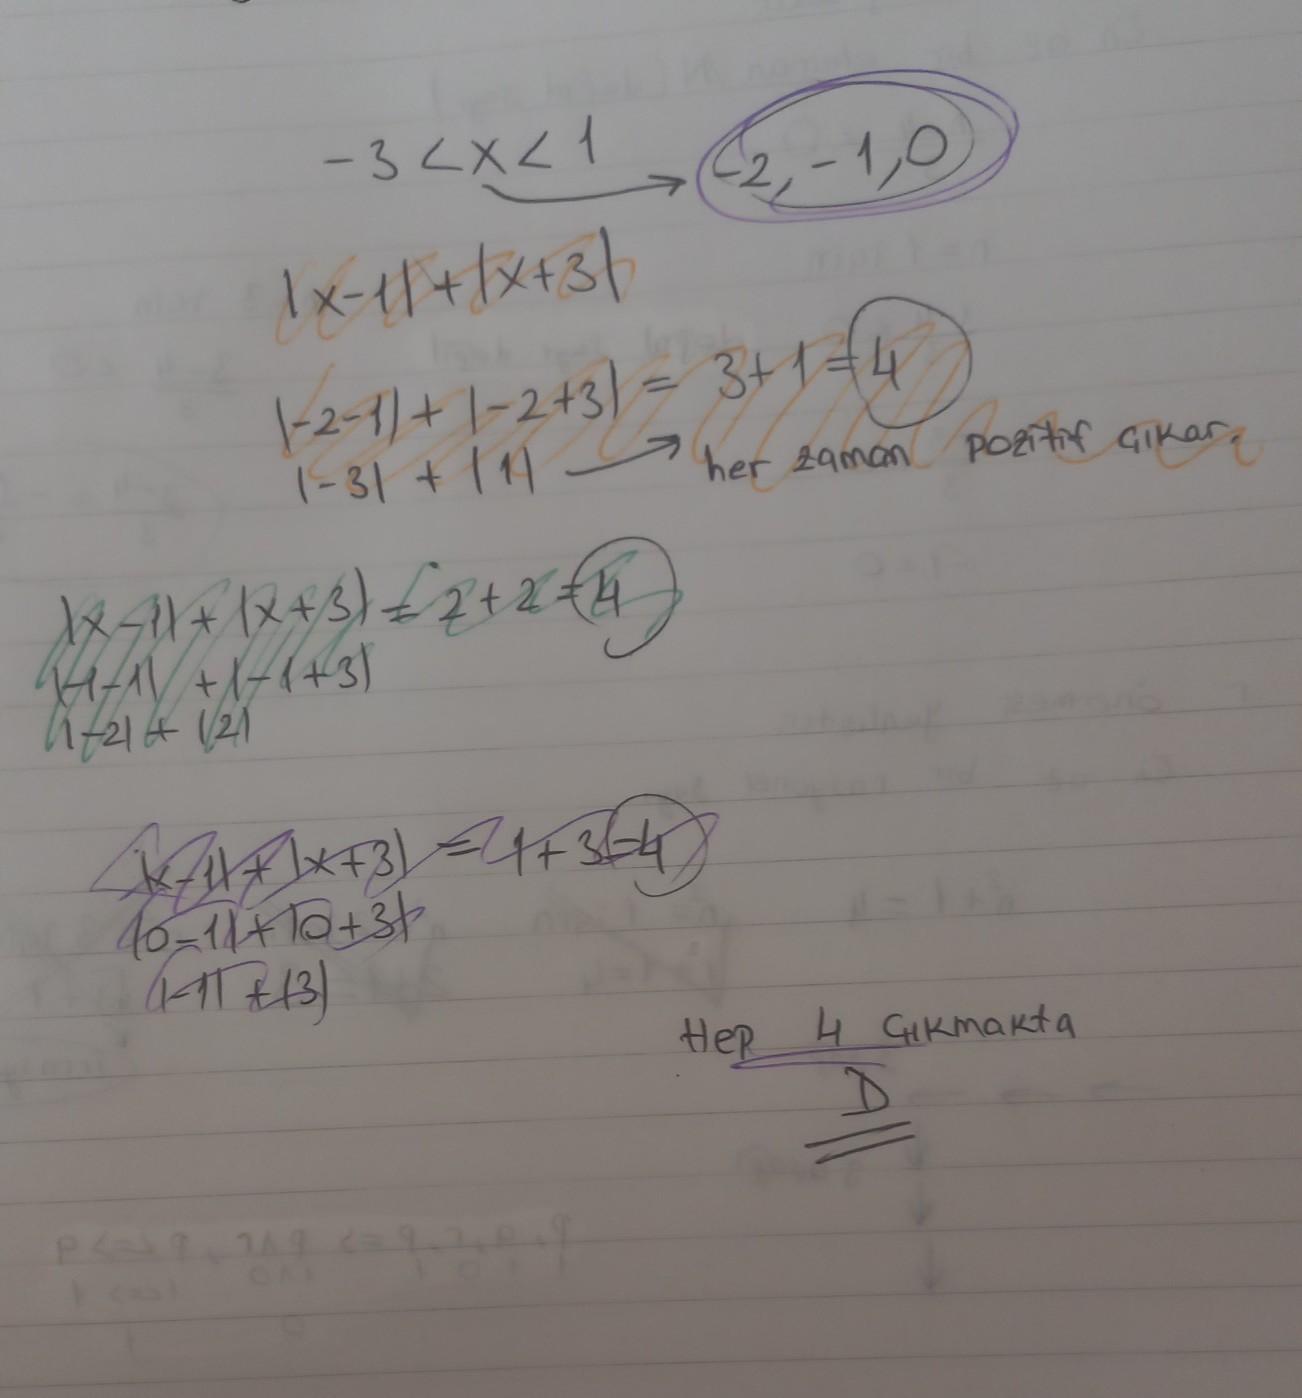 -3 < x < 1 → -2, -1, 0
|x-1| + |x+3|
|-2-1| + |-2+3| = 3+1 = 4
|-3| + |1| → her zaman pozitif çıkar.
|x-1| + |x+3| = 2+2 = 4
|-1-1| + |-1+3|
|-2| + |2|
|x-1| + |x+3| = 1+3 = 4
|0-1| + |0+3|
|-1| + |3|
Hep 4 çıkmakta
D